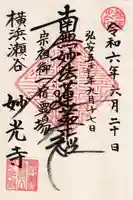 令和六年六月二十日
弘安五年九月十七日
南無妙法蓮華経
宗祖御霊場
横浜瀬谷
妙光寺